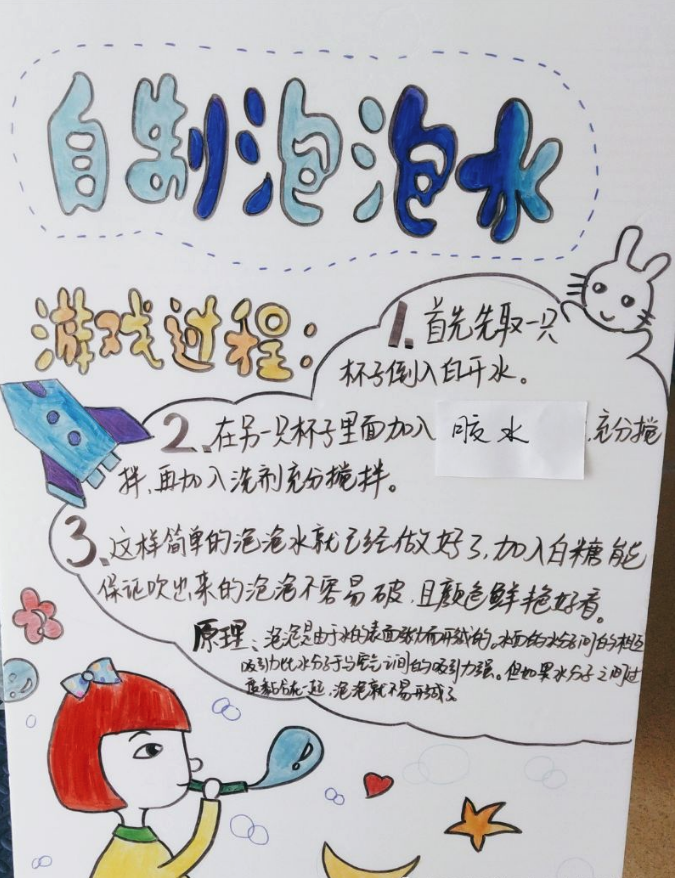 自制泡泡水
游戏过程:
1.首先先取一只
杯子倒入白开水。
2.在另一只杯子里面加入 胶水 .充分搅
拌、再加入洗剂充分搅拌。
3、这样简单的泡泡水就已经做好了,加入白糖能
保证吹出来的泡泡不容易破,且颜色鲜艳好看。
原理:泡泡是由于水的表面张力而形成的。水面的水分子间的相互
吸引力比水分子与空气之间的吸引力强。但如果水分子之间过
度黏合在一起,泡泡就不易形成了